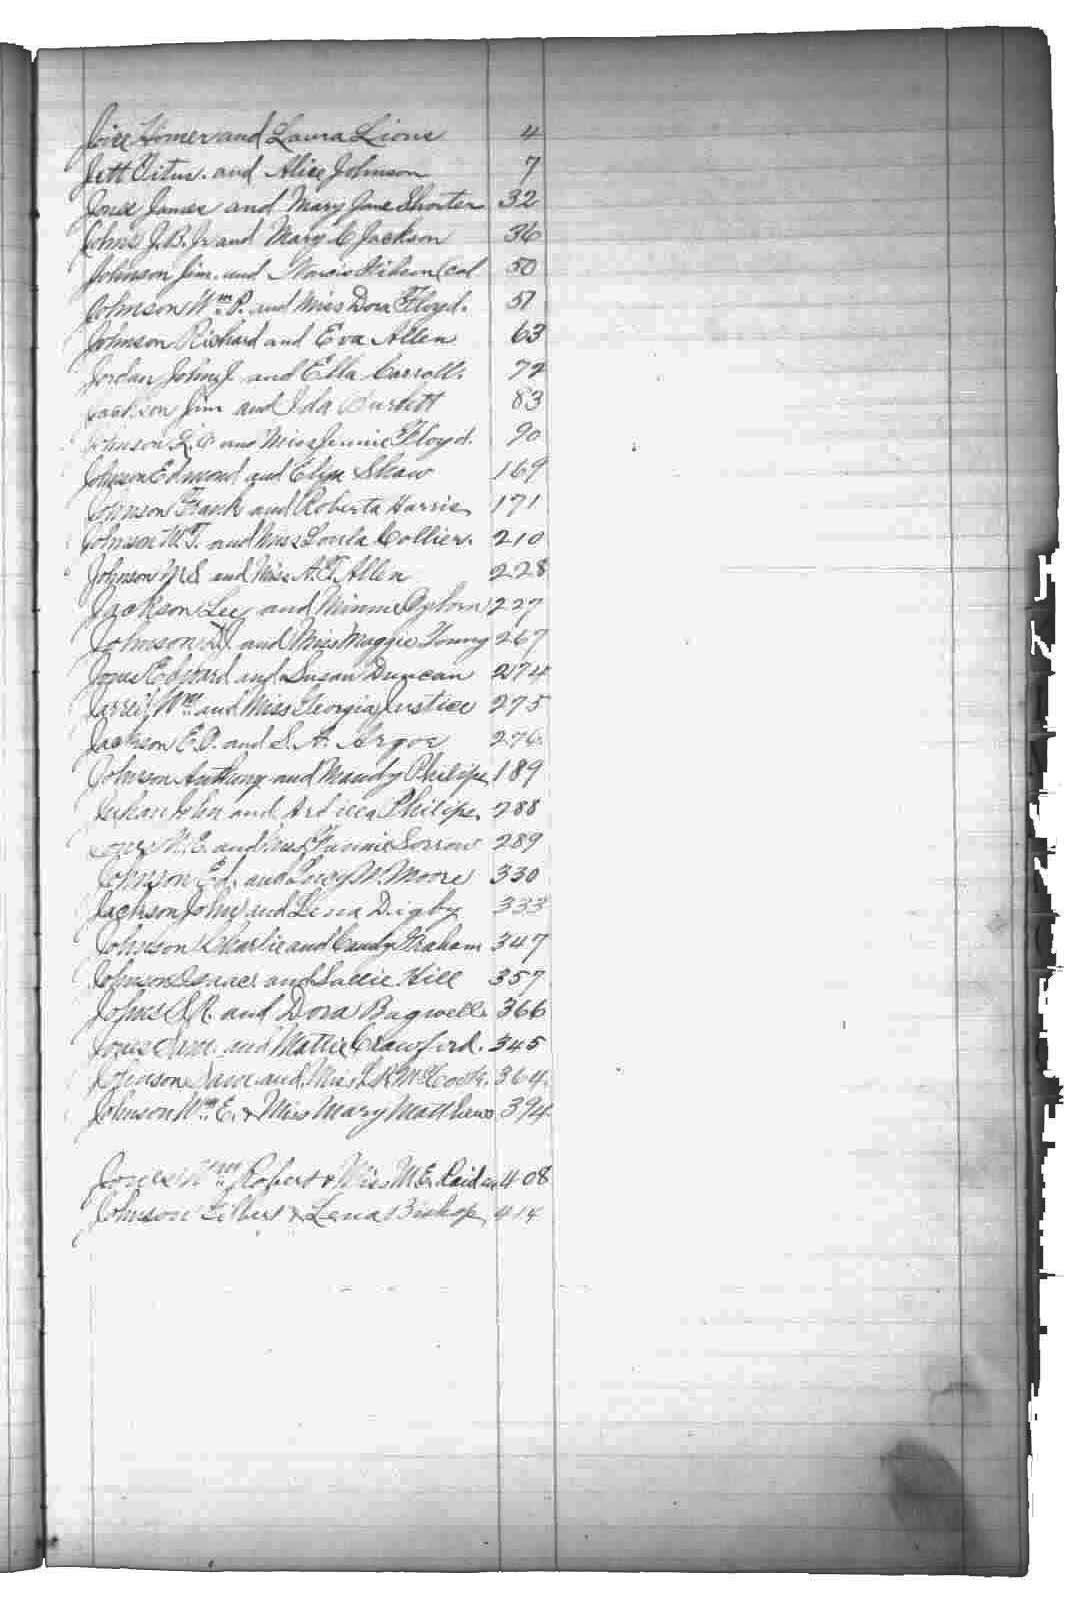 Joice Homer and Laura Lions 4
Jett Titus. and Alice Johnson 7
Jones James and Mary Jane Shorter 32
Johns J.B. Jr and Mary C Jackson 36
Johnson Jim. and Wilson (col 50
Johnson Wm. P. and Miss Dora Floyd. 51
Johnson Richard and Eva Allen 63
Jordan John J. and Ella Carroll. 72
Jackson Jim and Ida Burdett 83
Johnson and Miss Jennie Floyd. 90
Johnson Edmond and Eliza Shaw 169
Johnson Frank and Roberta Harris 171
Johnson M.T. and Miss Loula Collier. 210
Johnson N.S. and Miss A.T. Allen 228
Jackson Lee and Minnie Ogborn 227
Johnson and Miss Maggie Young 267
Jones Edward and Susan Duncan 274
Wm. and Miss Georgia Justice 275
Jackson E.O. and S.A. Argoe 276
Johnson Anthony and Mandy Philips 189
John and Philips. 288
and Miss Fannie Sorrow 289
Johnson Ed. and Lucy M. Moore 330
Jackson John and Lena Digby 333
Johnson Charlie and Candy Graham 347
Johnson Isaac and Sallie Hill 357
Johns and Dora Bagwell 366
Jones and Mattie Crawford. 345
Johnson and Miss 364.
Johnson Wm. E. & Miss Mary Matthews 394
Jones Wm. Robert & Miss M.E. 408
Johnson & Lena Bishop 414